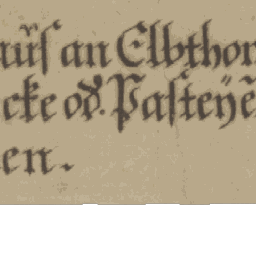 auß an Elbthor
cke od. Pasteÿe
en.